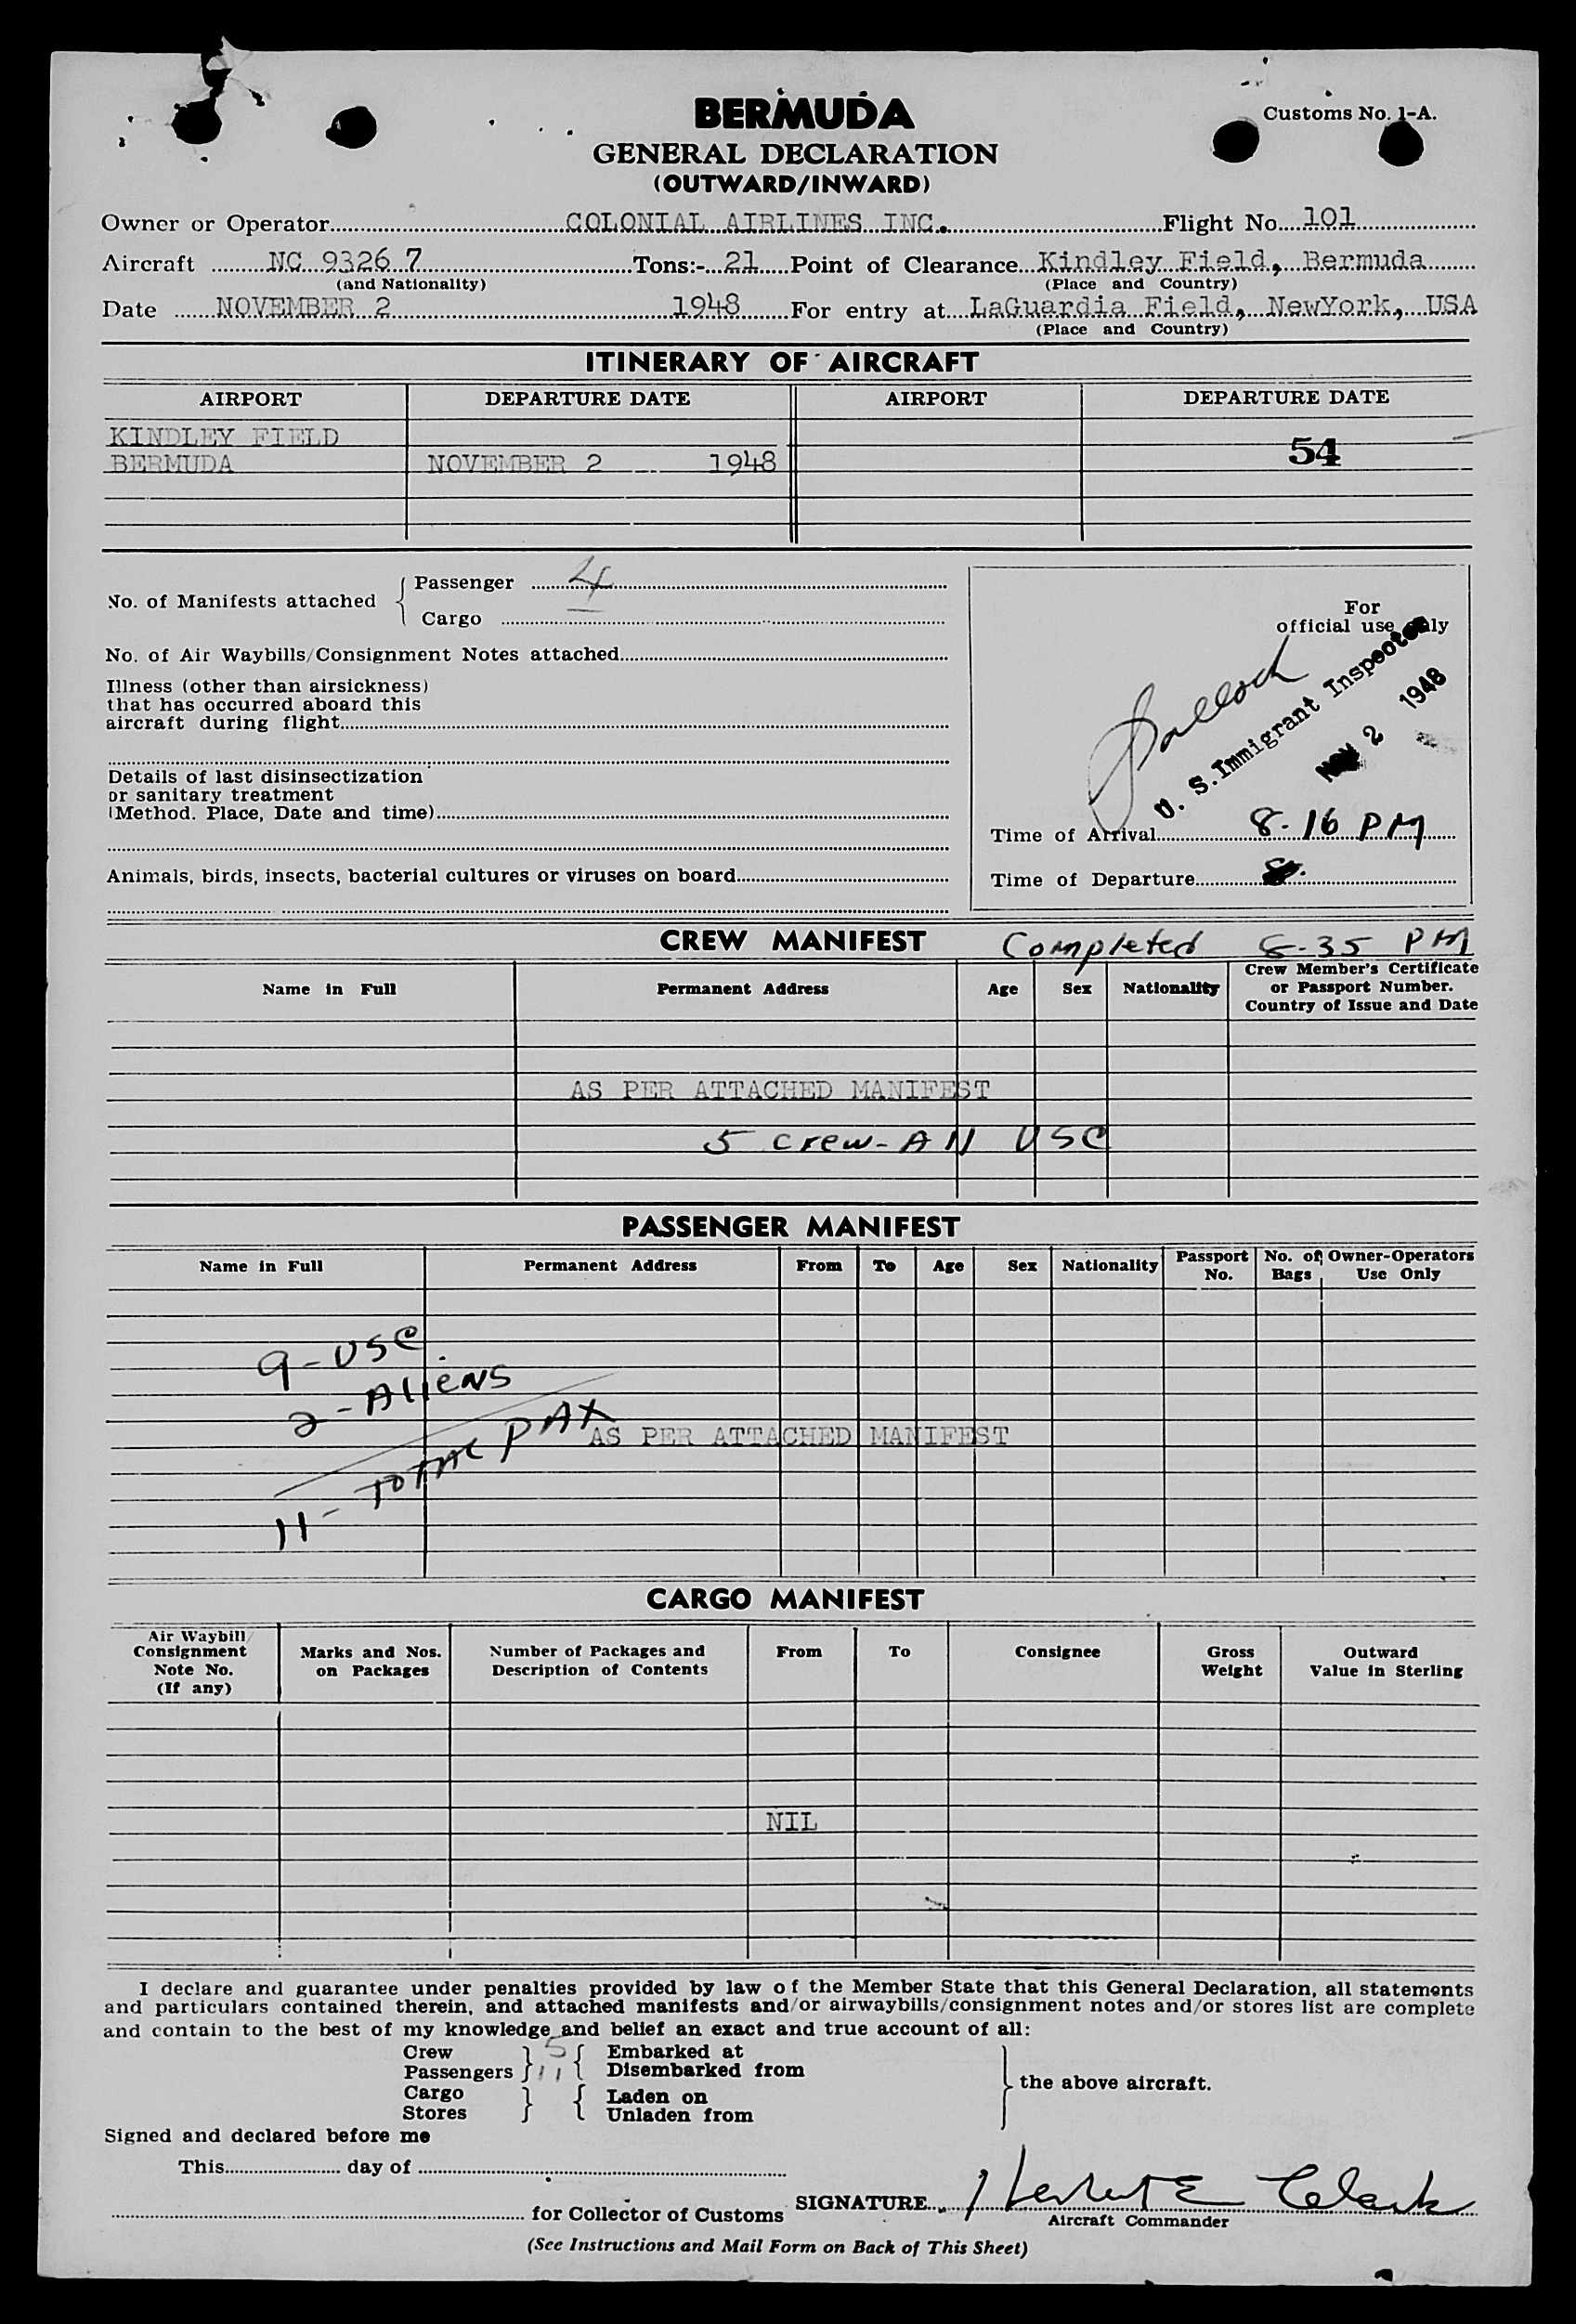 BERMUDA
Customs No. 1-A.
GENERAL DECLARATION
(OUTWARD/INWARD)
Owner or Operator COLONIAL AIRLINES INC. Flight No. 101
Aircraft NC 9326 7 Tons:- 21 Point of Clearance Kindley Field, Bermuda
(and Nationality) (Place and Country)
Date NOVEMBER 2 1948 For entry at LaGuardia Field, NewYork, USA
(Place and Country)
ITINERARY OF AIRCRAFT
AIRPORT DEPARTURE DATE AIRPORT DEPARTURE DATE
KINDLEY FIELD
BERMUDA NOVEMBER 2 1948 54
No. of Manifests attached { Passenger 4
Cargo
No. of Air Waybills/Consignment Notes attached
Illness (other than airsickness)
that has occurred aboard this
aircraft during flight
Details of last disinsectization
or sanitary treatment
(Method. Place, Date and time)
Animals, birds, insects, bacterial cultures or viruses on board
For
official use only
U. S. Immigrant Inspector
NOV 2 1948
Time of Arrival 8-16 PM
Time of Departure
CREW MANIFEST Completed 8-35 PM
Name in Full Permanent Address Age Sex Nationality Crew Member's Certificate
or Passport Number.
Country of Issue and Date
AS PER ATTACHED MANIFEST
5 crew - All USC
PASSENGER MANIFEST
Name in Full Permanent Address From To Age Sex Nationality Passport No. No. of Bags Owner-Operators Use Only
9 - USC
2 - Aliens
11 - TOTAL PAX
AS PER ATTACHED MANIFEST
CARGO MANIFEST
Air Waybill/
Consignment
Note No.
(If any)
Marks and Nos.
on Packages
Number of Packages and
Description of Contents
From To Consignee
Gross
Weight
Outward
Value in Sterling
NIL
I declare and guarantee under penalties provided by law of the Member State that this General Declaration, all statements
and particulars contained therein, and attached manifests and/or airwaybills/consignment notes and/or stores list are complete
and contain to the best of my knowledge and belief an exact and true account of all:
Crew 5 Embarked at
Passengers 11 Disembarked from
the above aircraft.
Cargo Laden on
Stores Unladen from
Signed and declared before me
This day of
for Collector of Customs SIGNATURE Herbert E Clark
Aircraft Commander
(See Instructions and Mail Form on Back of This Sheet)